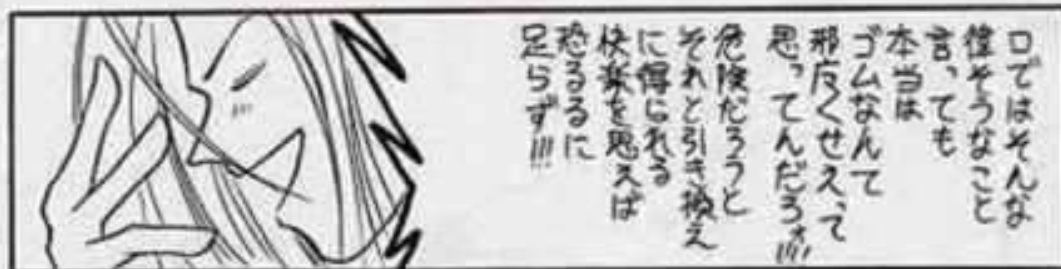 口ではそんな
偉そうなこと
言っても
本当は
ゴムなんて
邪广くせえって
思ってんだろォ!!!
危険だろうと
それと引き換え
に得られる
快楽を思えば
恐るるに
足らず!!!